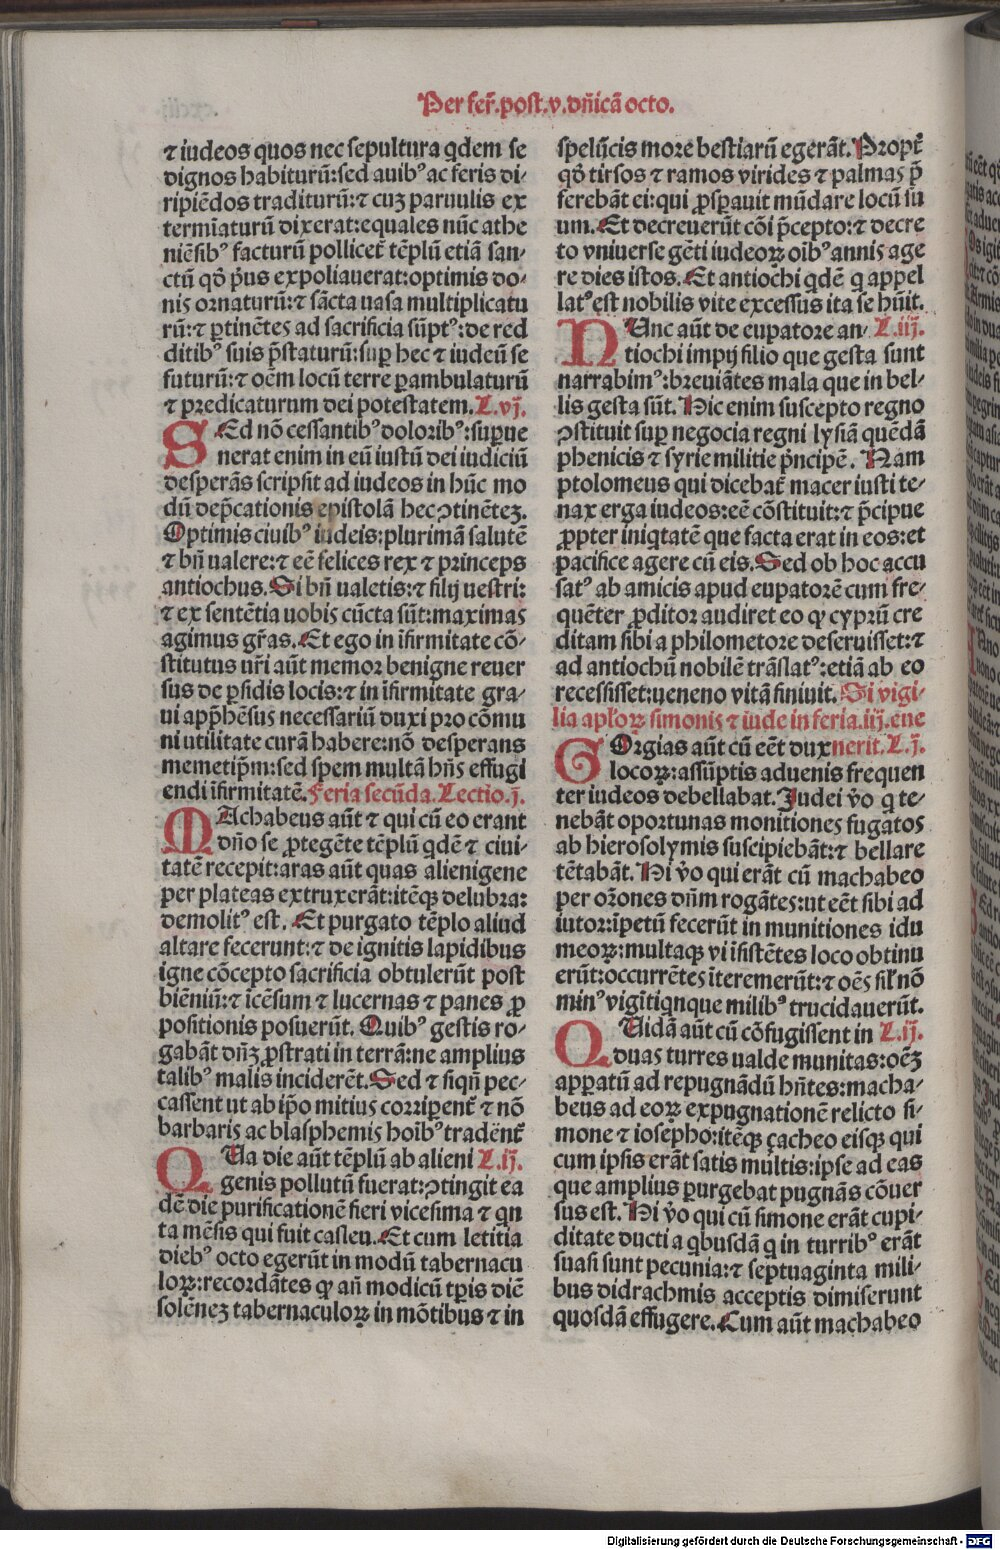 Per fer̄. post. v. dn̄icā octo.
⁊ iudeos quos nec sepultura qdem se
dignos habiturū: sed auibꝰ ac feris di-
ripiēdos traditurū: ⁊ cuȝ paruulis ex
termīaturū dixerat: equales nūc athe
niēsibꝰ facturū pollicet̄ tēplū etiā san-
ctū qō pͥus expoliauerat: optimis do-
nis ornaturū: ⁊ sācta uasa multiplicatu
rū: ⁊ ꝑtinētes ad sacrificia sūptꝰ: de red
ditibꝰ suis p̄staturū: suꝑ hec ⁊ iudeū se
futurū: ⁊ oēm locū terre ꝑambulaturū
⁊ predicaturum dei potestatem. L. vj.
SEd nō cessantibꝰ doloribꝰ: suꝑue
nerat enim in eū iustū dei iudiciū
desperās scripsit ad iudeos in hūc mo
dū dep̄cationis epistolā hec ꝯtinēteȝ.
Optimis ciuibꝰ iudeis: plurimā salutē
⁊ bn̄ ualere: ⁊ eē felices rex ⁊ princeps
antiochus. Si bn̄ ualetis: ⁊ filij uestri:
⁊ ex sentētia uobis cūcta sūt: maximas
agimus gr̄as. Et ego in īfirmitate cō-
stitutus ur̄i aūt memor benigne reuer
sus de ꝑsidis locis: ⁊ in īfirmitate gra-
ui app̄hēsus necessariū duxi pro cōmu
ni utilitate curā habere: nō desperans
memetip̄m: sed spem multā hn̄s effugi
endi īfirmitatē. Feria secūda. Lectio. j.
MAchabeus aūt ⁊ qui cū eo erant
dn̄o se ꝓtegēte tēplū qdē ⁊ ciui-
tatē recepit: aras aūt quas alienigene
per plateas extruxerāt: itēqꝫ delubra:
demolitꝰ est. Et purgato tēplo aliud
altare fecerunt: ⁊ de ignitis lapidibus
igne cōcepto sacrificia obtulerūt post
biēniū: ⁊ īcēsum ⁊ lucernas ⁊ panes ꝓ
positionis posuerūt. Quibꝰ gestis ro-
gabāt dn̄ȝ ꝓstrati in terrā: ne amplius
talibꝰ malis inciderēt. Sed ⁊ siqn̄ pec-
cassent ut ab ip̄o mitius corriperent̄ ⁊ nō
barbaris ac blasphemis hoībꝰ tradēnt̄
QUa die aūt tēplū ab alieni L. ij.
genis pollutū fuerat: ꝯtingit ea
dē die purificationē fieri vicesima ⁊ qn
ta mēsis qui fuit casleu. Et cum letitia
diebꝰ octo egerūt in modū tabernacu
loꝝ: recordātes ꝙ an̄ modicū tꝑis diē
solēneȝ tabernaculoꝝ in mōtibus ⁊ in
spelūcis more bestiarū egerāt. Propt̄
qō tirsos ⁊ ramos virides ⁊ palmas p̄
ferebāt ei: qui ꝓsꝑauit mūdare locū su
um. Et decreuerūt cōi p̄cepto: ⁊ decre
to vniuerse gēti iudeoꝝ oībꝰ annis age
re dies istos. Et antiochi qdē q appel
latꝰ est nobilis vite excessus ita se hūit.
NUnc aūt de eupatore an- L. iij.
tiochi impij filio que gesta sunt
narrabimꝰ: breuiātes mala que in bel-
lis gesta sūt. Hic enim suscepto regno
ꝯstituit suꝑ negocia regni lysiā quēdā
phenicis ⁊ syrie militie pͥncipē. Nam
ptolomeus qui dicebat̄ macer iusti te-
nax erga iudeos: eē cōstituit: ⁊ p̄cipue
ꝓpter iniqtatē que facta erat in eos: et
pacifice agere cū eis. Sed ob hoc accu
satꝰ ab amicis apud eupatorē cum fre-
quēter ꝓditor audiret eo ꝙ cyprū cre
ditam sibi a philometore deseruisset: ⁊
ad antiochū nobilē trāslatꝰ: etiā ab eo
recessisset: ueneno vitā finiuit. Si vigi-
lia apl̄oꝝ simonis ⁊ iude in feria. iij. eue
GOrgias aūt cū eēt dux nerit. L. j.
locoꝝ: assūptis aduenis frequen
ter iudeos debellabat. Judei v̄o q te-
nebāt oportunas monitiones fugatos
ab hierosolymis suscipiebāt: ⁊ bellare
tētabāt. Hi v̄o qui erāt cū machabeo
per or̄ones dn̄m rogātes: ut eēt sibi ad
iutor: īpetū fecerūt in munitiones idu
meoꝝ: multaqꝫ vi īsistētes loco obtinu
erūt: occurrētes īteremerūt: ⁊ oēs sil̄ nō
minꝰ vigītiqnque milibꝰ trucidauerūt.
QUidā aūt cū cōfugissent in L. ij.
duas turres ualde munitas: oēȝ
apparatū ad repugnādū hn̄tes: macha-
beus ad eoꝝ expugnationē relicto si-
mone ⁊ iosepho: itēqꝫ çacheo eisqꝫ qui
cum ipsis erāt satis multis: ipse ad eas
que amplius ꝑurgebat pugnās cōuer
sus est. Hi v̄o qui cū simone erāt cupi-
ditate ducti a qbusdā q in turribꝰ erāt
suasi sunt pecunia: ⁊ septuaginta mili-
bus didrachmis acceptis dimiserunt
quosdā effugere. Cum aūt machabeo
Digitalisierung gefördert durch die Deutsche Forschungsgemeinschaft - DFG